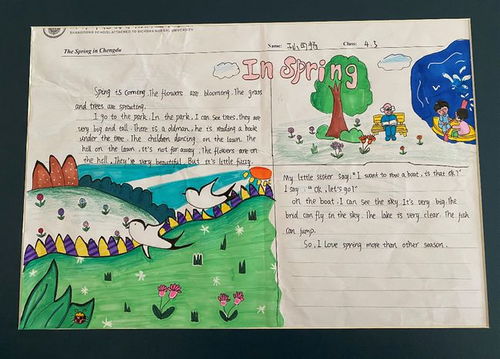 SHANGHAI SCHOOL ATTACHED TO SICHUAN NORMAL UNIVERSITY
The Spring in Chengdu
Name: Class: 4.5
In Spring
Spring is coming. The flowers are blooming. The grass
and trees are sprouting.
I go to the park. In the park, I can see trees, they are
very big and tall. There is a oldman, he is reading a book
under the tree. The children dancing on the lawn. The
hill on the lawn, it's not far away. The flowers are on
the hell. They're very beautiful. But it's little fuzzy.
My little sister say: "I want to row a boat, is that ok?"
I say: "Ok, let's go!"
On the boat, I can see the sky. It's very big. The
brid can fly in the sky. The lake is very clear. The fish
can jump.
So, I love spring more than other season.